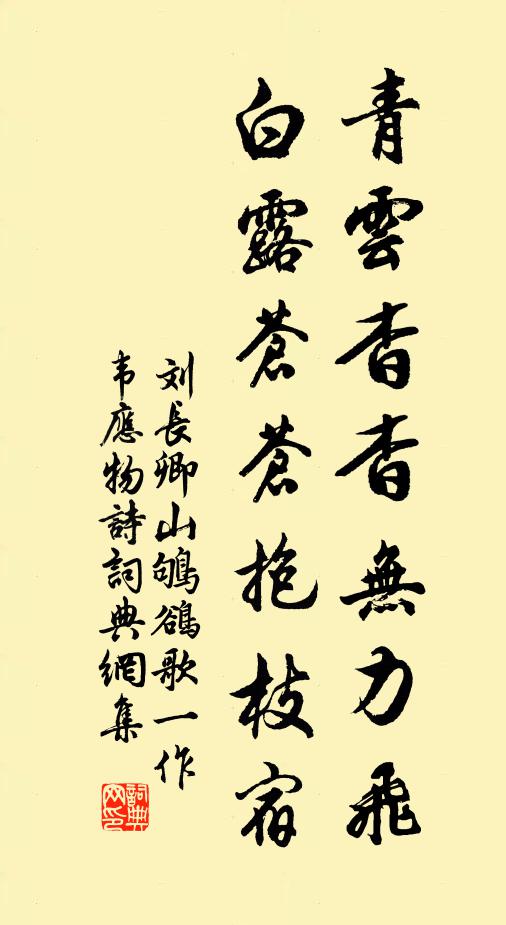 青雲杳杳無力飛
白露蒼蒼抱枝宿
刘長卿山鴝鵒歌一作
韦應物詩詞典網集
詞典
网印